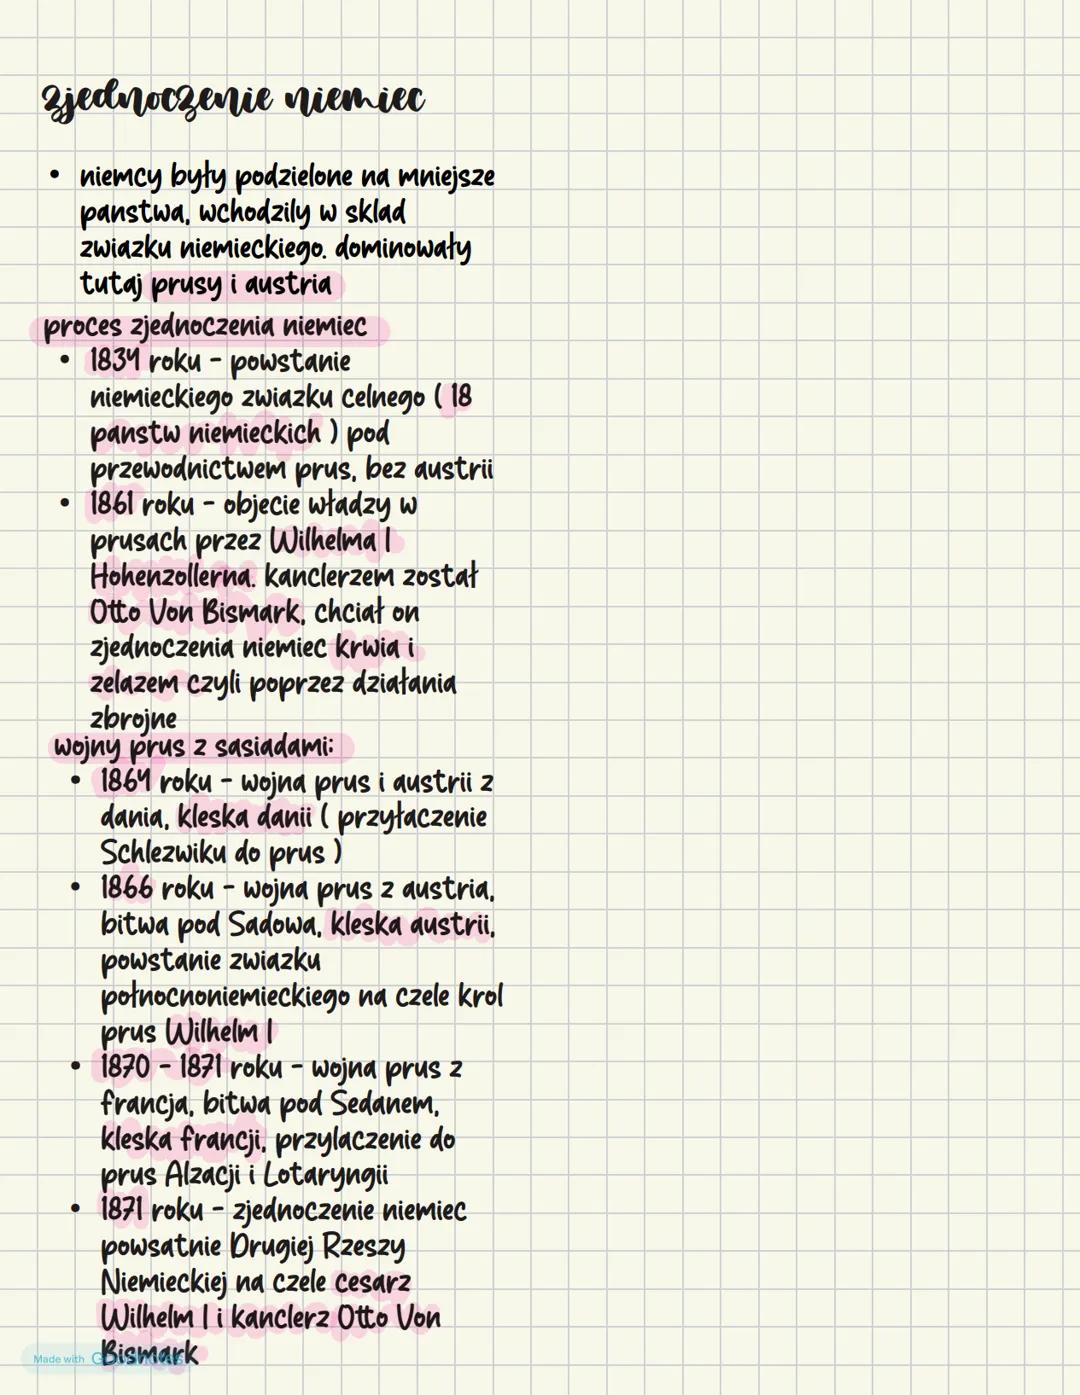 zjednoczenie niemiec
• niemcy były podzielone na mniejsze
panstwa, wchodzily w sklad
zwiazku niemieckiego. dominowały
tutaj prusy i austria
proces zjednoczenia niemiec
• 1834 roku - powstanie
niemieckiego zwiazku celnego ( 18
panstw niemieckich ) pod
przewodnictwem prus, bez austrii
• 1861 roku - objecie władzy w
prusach przez Wilhelma I
Hohenzollerna. kanclerzem został
Otto Von Bismark, chciał on
zjednoczenia niemiec krwia i
zelazem czyli poprzez działania
zbrojne
wojny prus z sasiadami:
• 1864 roku - wojna prus i austrii z
dania, kleska danii ( przyłaczenie
Schlezwiku do prus )
• 1866 roku - wojna prus z austria,
bitwa pod Sadowa, kleska austrii,
powstanie zwiazku
połnocnoniemieckiego na czele krol
prus Wilhelm I
• 1870 - 1871 roku - wojna prus z
francja, bitwa pod Sedanem,
kleska francji, przylaczenie do
prus Alzacji i Lotaryngii
• 1871 roku - zjednoczenie niemiec
powsatnie Drugiej Rzeszy
Niemieckiej na czele cesarz
Wilhelm I i kanclerz Otto Von
Bismark
Made with Goodnotes